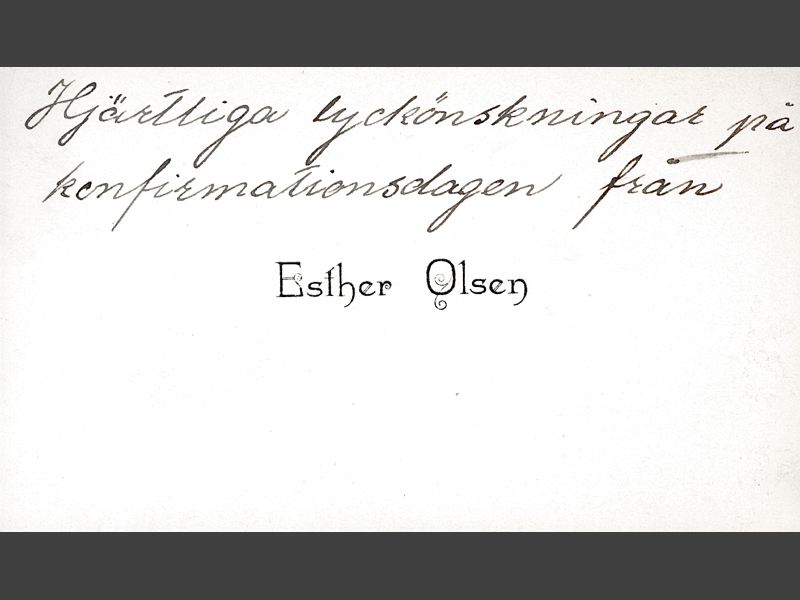 Hjärtliga lyckönskningar på
konfirmationsdagen från
Esther Olsen